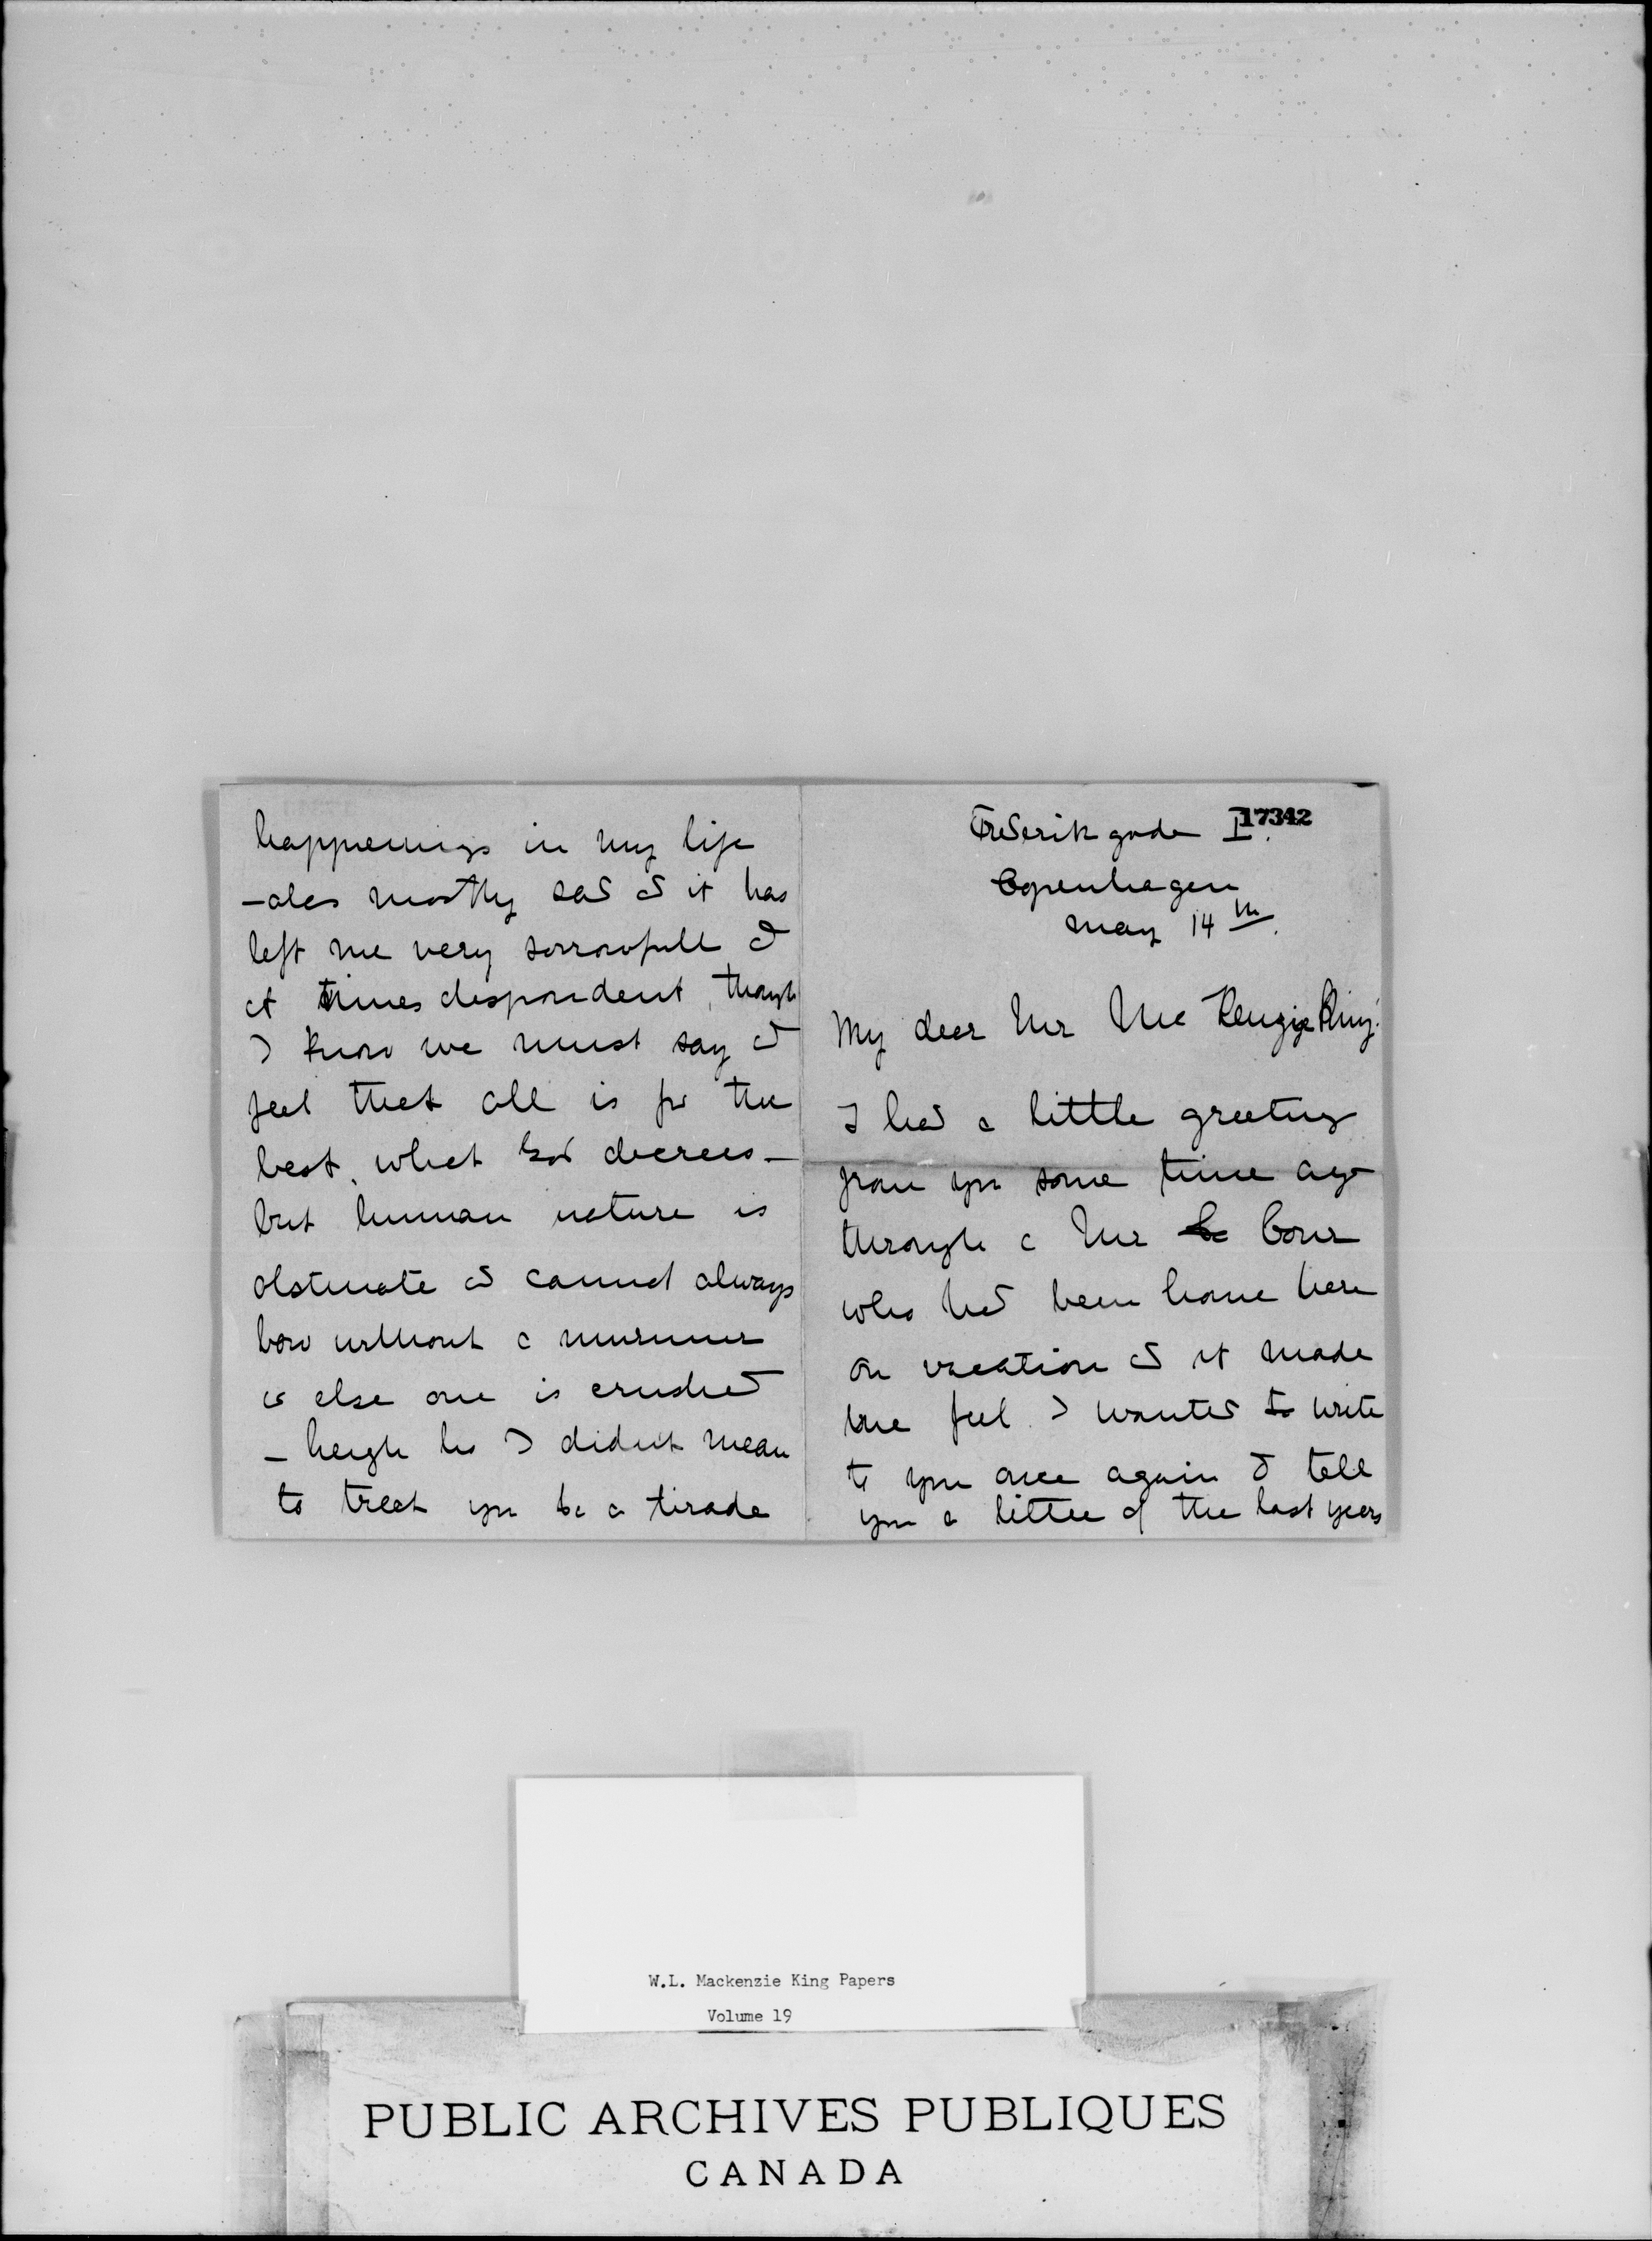 Frederikgade I.
17342
Copenhagen
May 14th.
My dear Mr McKenzie King.
I had a little greeting
from you some time ago
through a Mr
who had been home here
on vacation & it made
me feel I wanted to write
to you once again & tell
you a little of the last years
happenings in my life
-alas mostly sad & it has
left me very sorrowfull &
at times despondent, though
I know we must say &
feel that all is for the
best, what God decrees -
but human nature is
obstinate & cannot always
bow without a murmur
or else one is crushed
- heigh ho I didn't mean
to treat you to a tirade
W.L. Mackenzie King Papers
Volume 19
PUBLIC ARCHIVES PUBLIQUES
CANADA